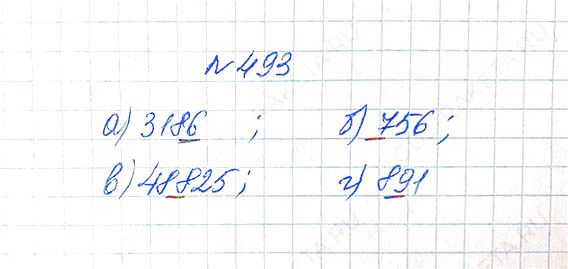 № 493
а) 3186 ; б) 756 ;
в) 48825 ; г) 891